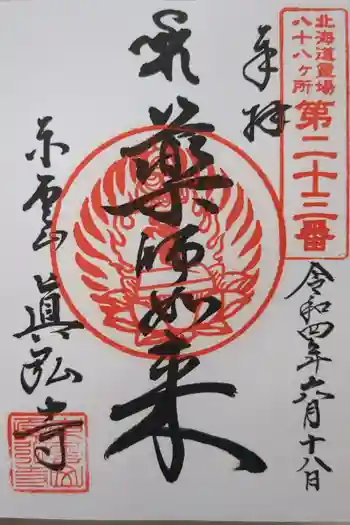 北海道霊場
八十八ヶ所
第二十三番
奉拝
令和四年六月十八日
藥師如来
雲山
眞弘寺